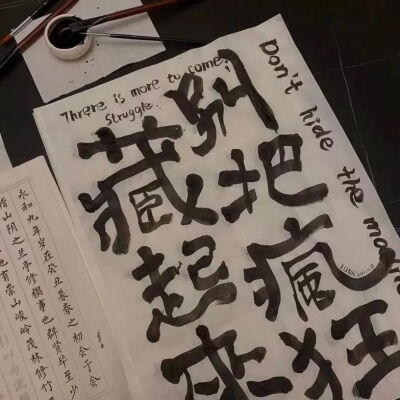 Threre is more to come.
Struggle.
Don't hide the
别把瘋狂
藏起来
永和九年岁在癸丑暮春之初会于会
稽山阴之兰亭修禊事也群贤毕至少
地有崇山峻岭茂林修竹